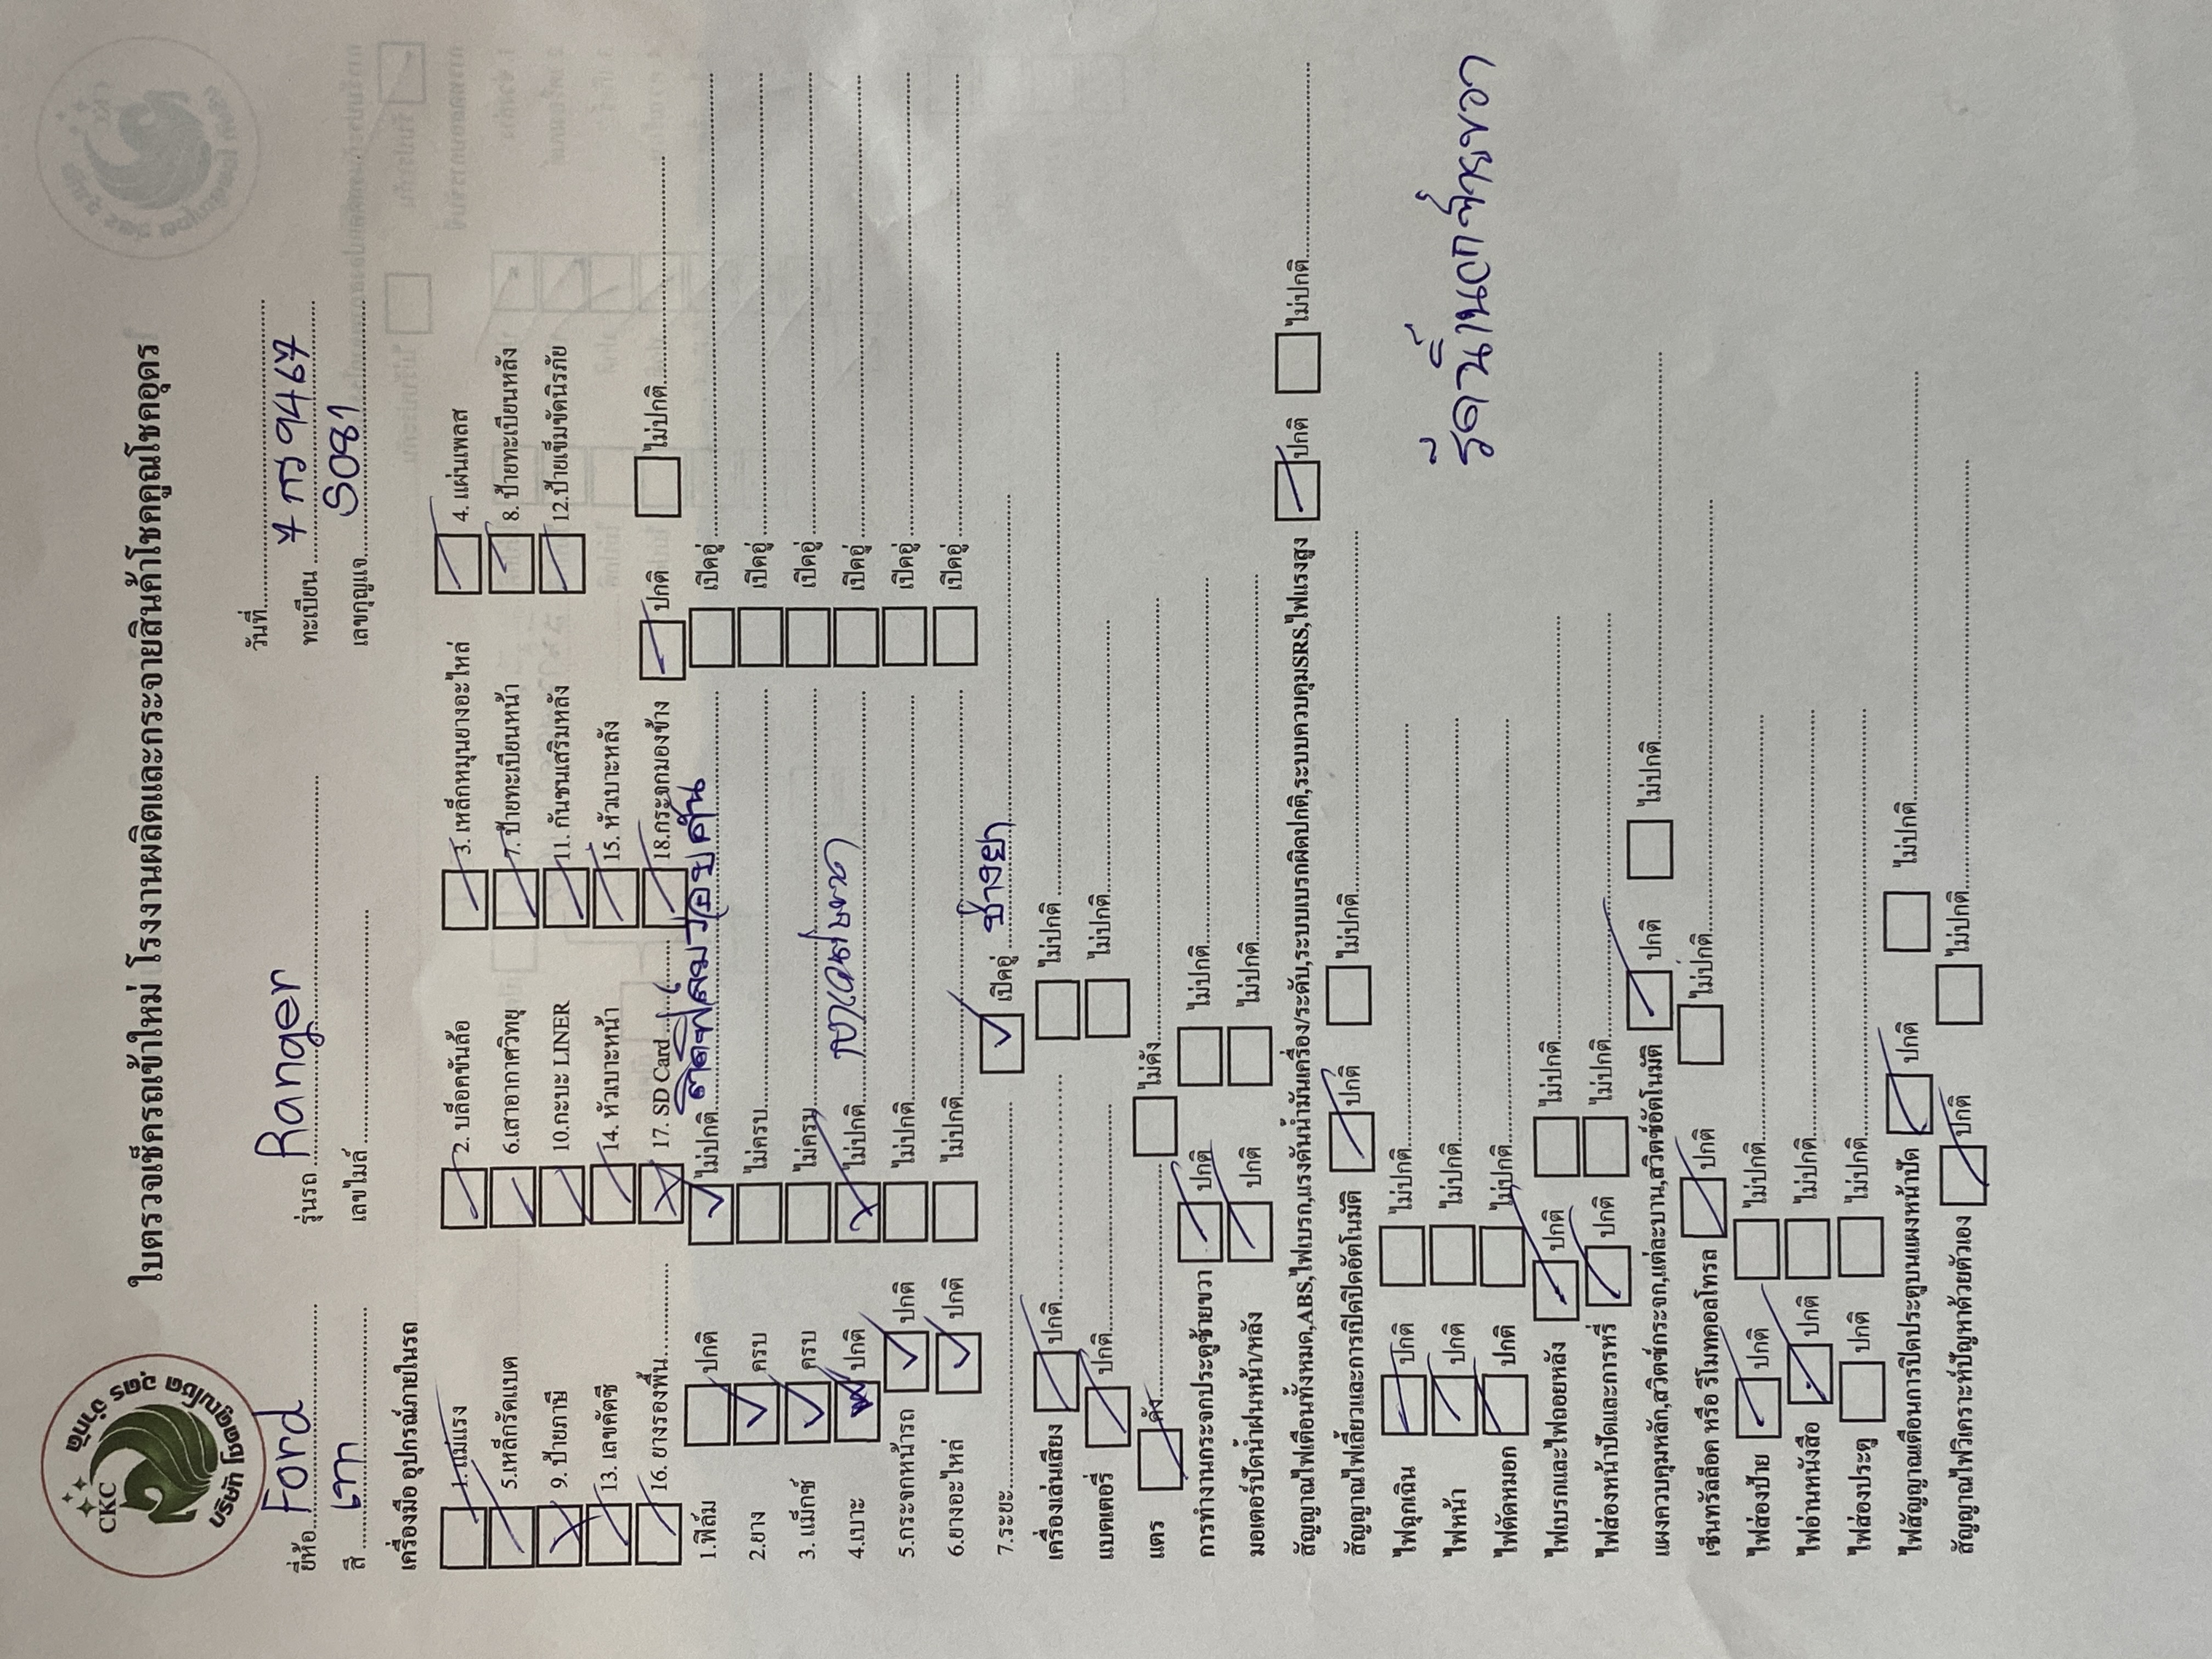 CKC
บริษัท โชคคูณโชค อุดร จำกัด
ใบตรวจเช็ครถเข้าใหม่ โรงงานผลิตและกระจายสินค้าโชคคูณโชคอุดร
วันที่
ยี่ห้อ Ford รุ่นรถ Ranger ทะเบียน 7 กว 9467
สี เทา เลขไมล์ เลขกุญแจ S081
เครื่องมือ อุปกรณ์ภายในรถ
1.แม่แรง 2. บล็อคขันล้อ 3. เหล็กหมุนยางอะไหล่ 4. แผ่นเพลส
5.เหล็กรัดแบต 6.เสาอากาศวิทยุ 7. ป้ายทะเบียนหน้า 8. ป้ายทะเบียนหลัง
9. ป้ายภาษี 10.กะบะ LINER 11. กันชนเสริมหลัง 12.ป้ายเข็มขัดนิรภัย
13. เลขคัตซี 14. หัวเบาะหน้า 15. หัวเบาะหลัง
16. ยางรองพื้น 17. SD Card 18.กระจกมองข้าง ปกติ ไม่ปกติ
1.ฟิล์ม ปกติ ไม่ปกติ ติดฟิล์มรอบคัน เปิดอู่
2.ยาง ครบ ไม่ครบ เปิดอู่
3. แม็กซ์ ครบ ไม่ครบ เปิดอู่
4.เบาะ ปกติ ไม่ปกติ เปิดอู่
5.กระจกหน้ารถ ปกติ ไม่ปกติ เปิดอู่
6.ยางอะไหล่ ปกติ ไม่ปกติ เปิดอู่
7.ระยะ เปิดอู่ ช่างยา
เครื่องเล่นเสียง ปกติ ไม่ปกติ
แบตเตอรี่ ปกติ ไม่ปกติ
แตร ดัง ไม่ดัง
การทำงานกระจกประตูซ้ายขวา ปกติ ไม่ปกติ
มอเตอร์ปัดน้ำฝนหน้า/หลัง ปกติ ไม่ปกติ
สัญญาณไฟเตือนทั้งหมด,ABS,ไฟเบรก,แรงดันน้ำมันเครื่อง/ระดับ,ระบบเบรกผิดปกติ,ระบบควบคุมSRS,ไฟแรงสูง ปกติ ไม่ปกติ
สัญญาณไฟเลี้ยวและการเปิดปิดอัตโนมัติ ปกติ ไม่ปกติ
ไฟฉุกเฉิน ปกติ ไม่ปกติ
ไฟหน้า ปกติ ไม่ปกติ
ไฟตัดหมอก ปกติ ไม่ปกติ
ไฟเบรกและไฟถอยหลัง ปกติ ไม่ปกติ
ไฟส่องหน้าปัดและการหรี่ ปกติ ไม่ปกติ
แผงควบคุมหลัก,สวิตซ์กระจก,แต่ละบาน,สวิตซ์อัตโนมัติ ปกติ ไม่ปกติ
เซ็นทรัลล็อค หรือ รีโมทคอลโทรล ปกติ ไม่ปกติ
ไฟส่องป้าย ปกติ ไม่ปกติ
ไฟอ่านหนังสือ ปกติ ไม่ปกติ
ไฟส่องประตู ปกติ ไม่ปกติ
ไฟสัญญาณเตือนการปิดประตูบนแผงหน้าปัด ปกติ ไม่ปกติ
สัญญาณไฟวิเคราะห์ปัญหาด้วยตัวเอง ปกติ ไม่ปกติ